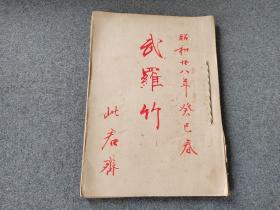 昭和廿八年癸巳春
武羅竹
此君雅